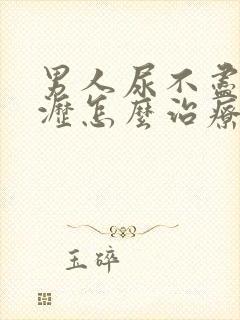 男人尿不盡
瀝怎麼治療
玉碎